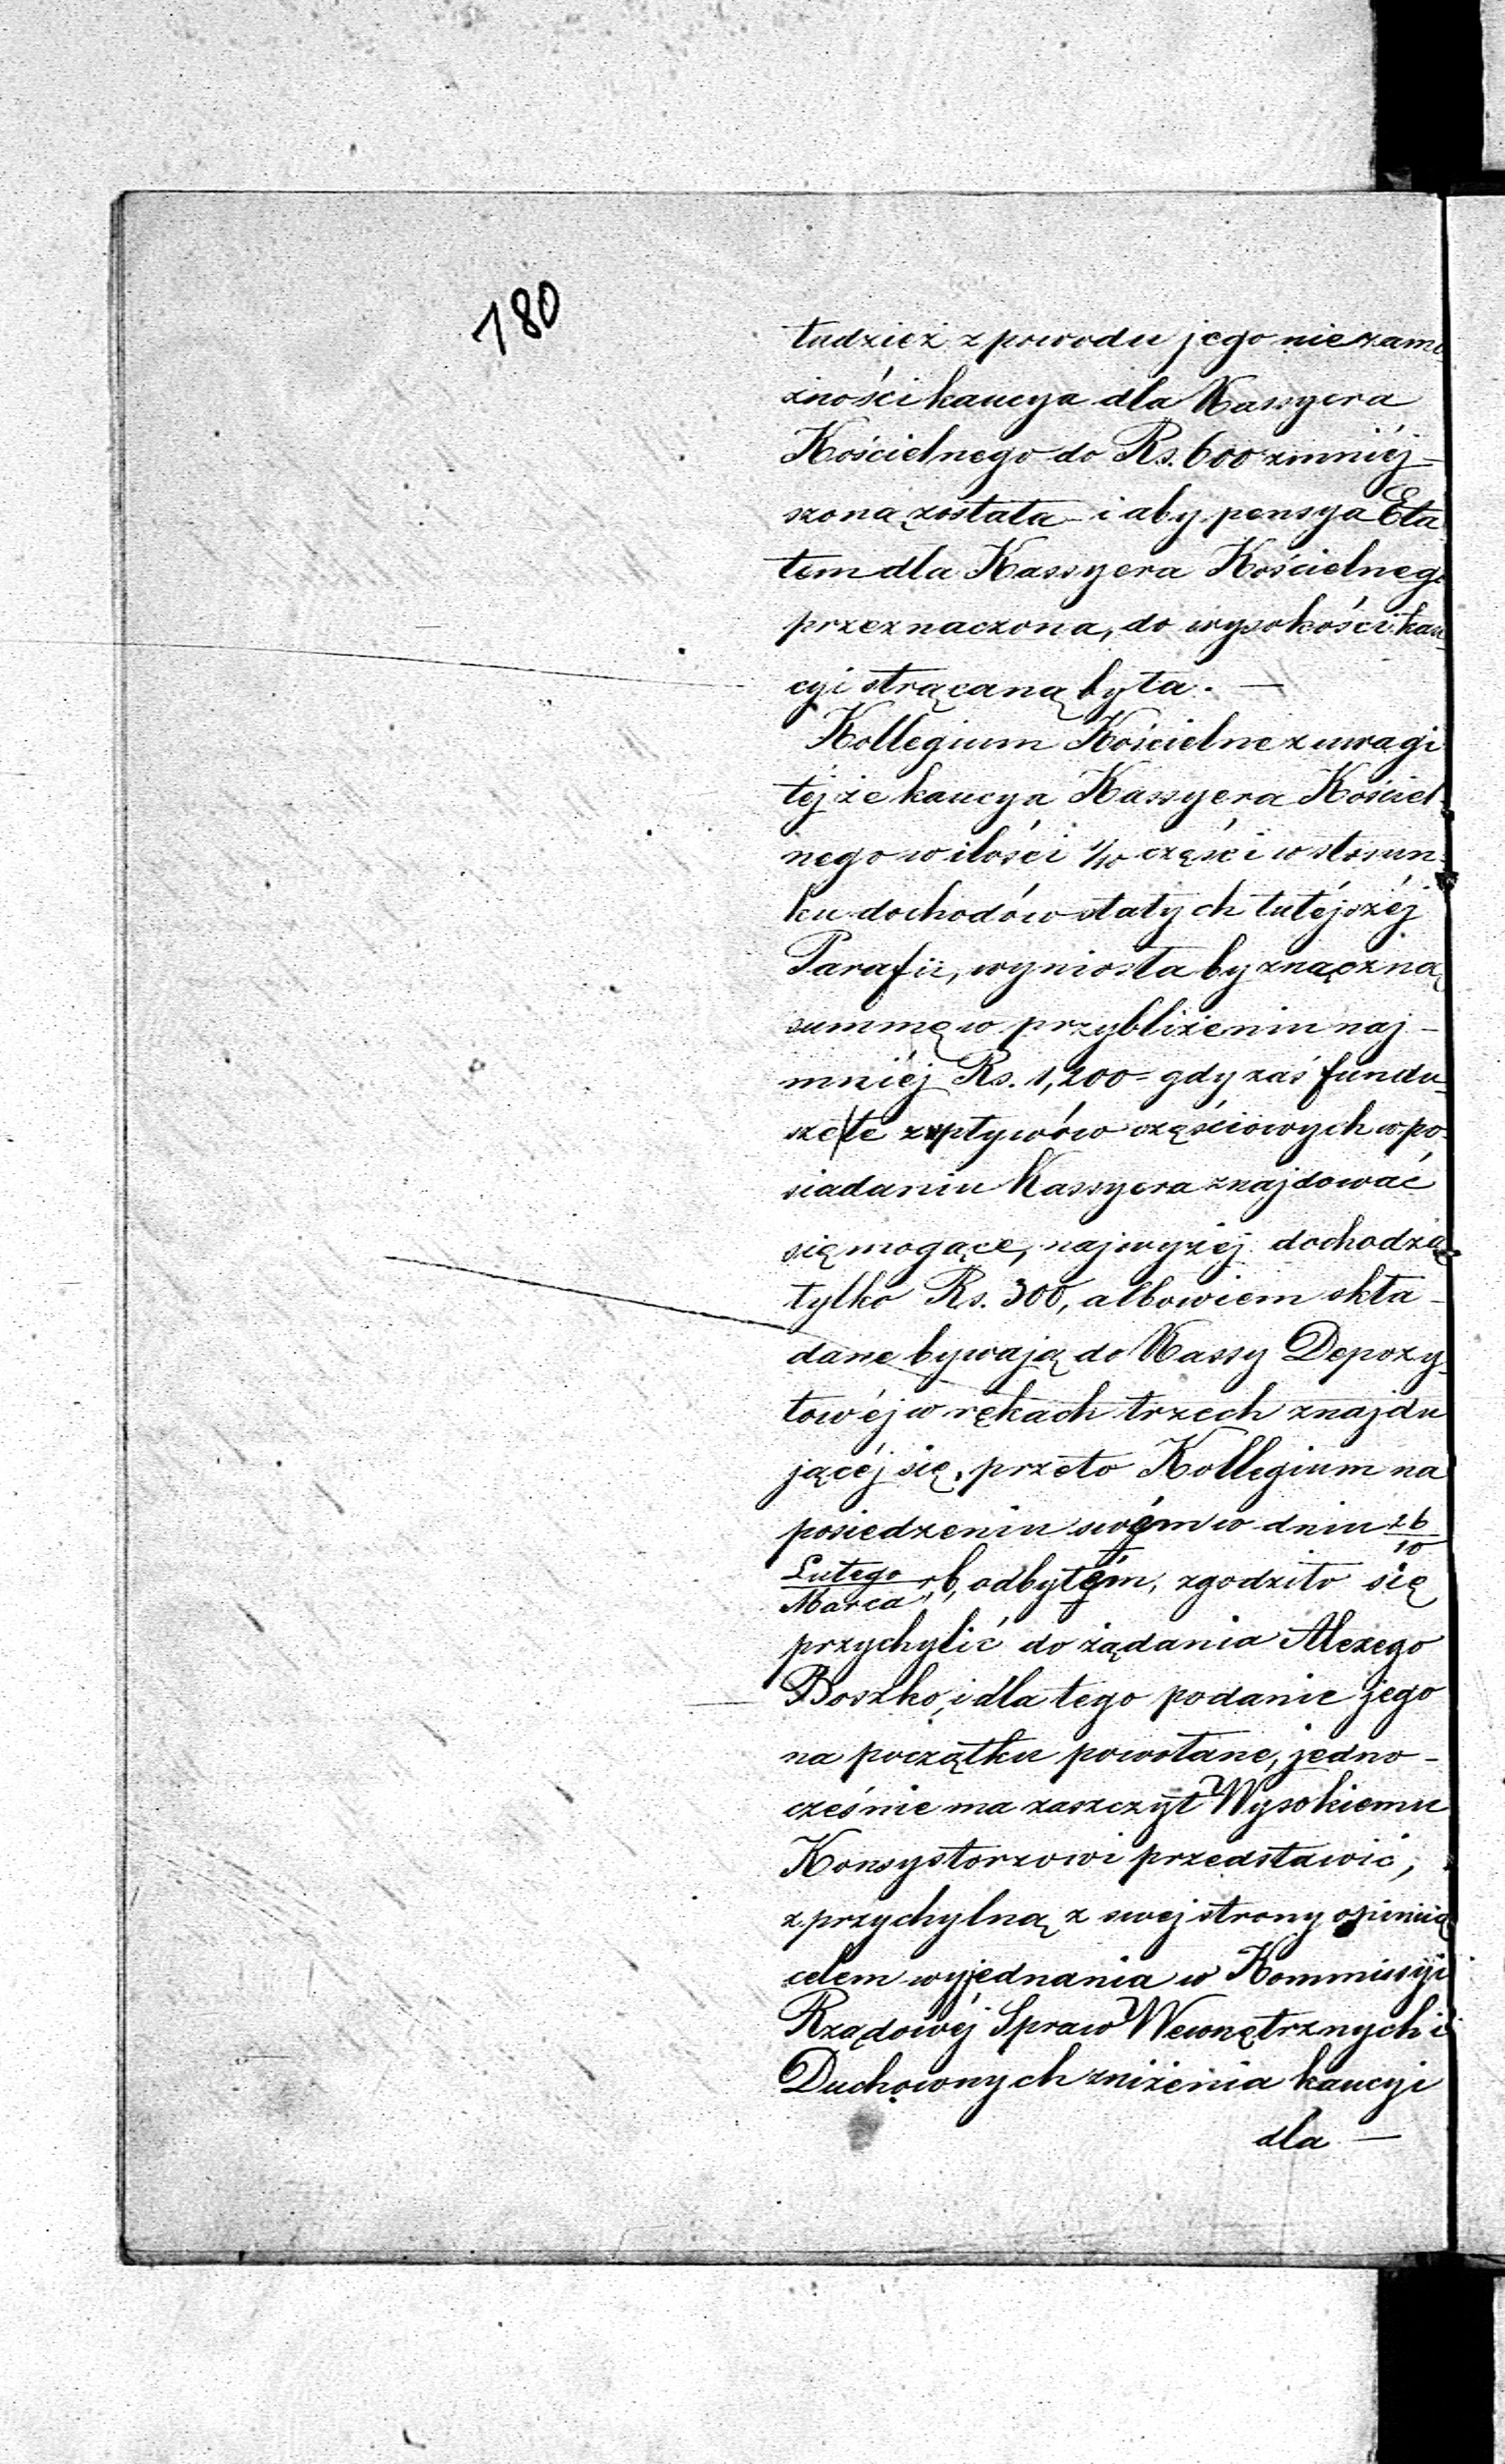 180
tudzież z powodu jego niezamo-
żności kaucya dla Kassyera
Kościelnego do Rs. 600 zmniéj-
szoną została – i aby pensya Eta
tem dla Kassyera Kościelnego
przeznaczona, do wysokości kau-
cyi strącaną była. –
Kollegium Kościelne z uwagi
téj że kaucya Kassyera Kościel-
nego w ilości 1/10 części w stosun-
ku dochodów stałych tutéjszéj
Parafii, wyniosła by znaczną
summę w przybliżeniu naj-
mniéj Rs. 1,200 = gdy zaś fundu-
sze te z wpływów częściowych w po-
siadaniu Kassyera znajdować
się mogące, najwyżéj dochodzą
tylko Rs. 300, albowiem skła-
dane bywają do Kassy Depozy-
towéj w rękach trzech znajdu
jącéj się, przeto Kollegium na
posiedzeniu swém w dniu 26/10
Lutego/Marca r. b. odbytém, zgodziło się
przychylić do żądania Alexego
Boszko, i dla tego podanie jego
na początku powołane, jedno-
cześnie ma zaszczyt Wysokiemu
Konsystorzowi przedstawić,
z przychylną z swej strony opinią
celem wyjednania w Kommissyi
Rządowéj Spraw Wewnętrznych i
Duchownych zniżenia kaucyi
dla –